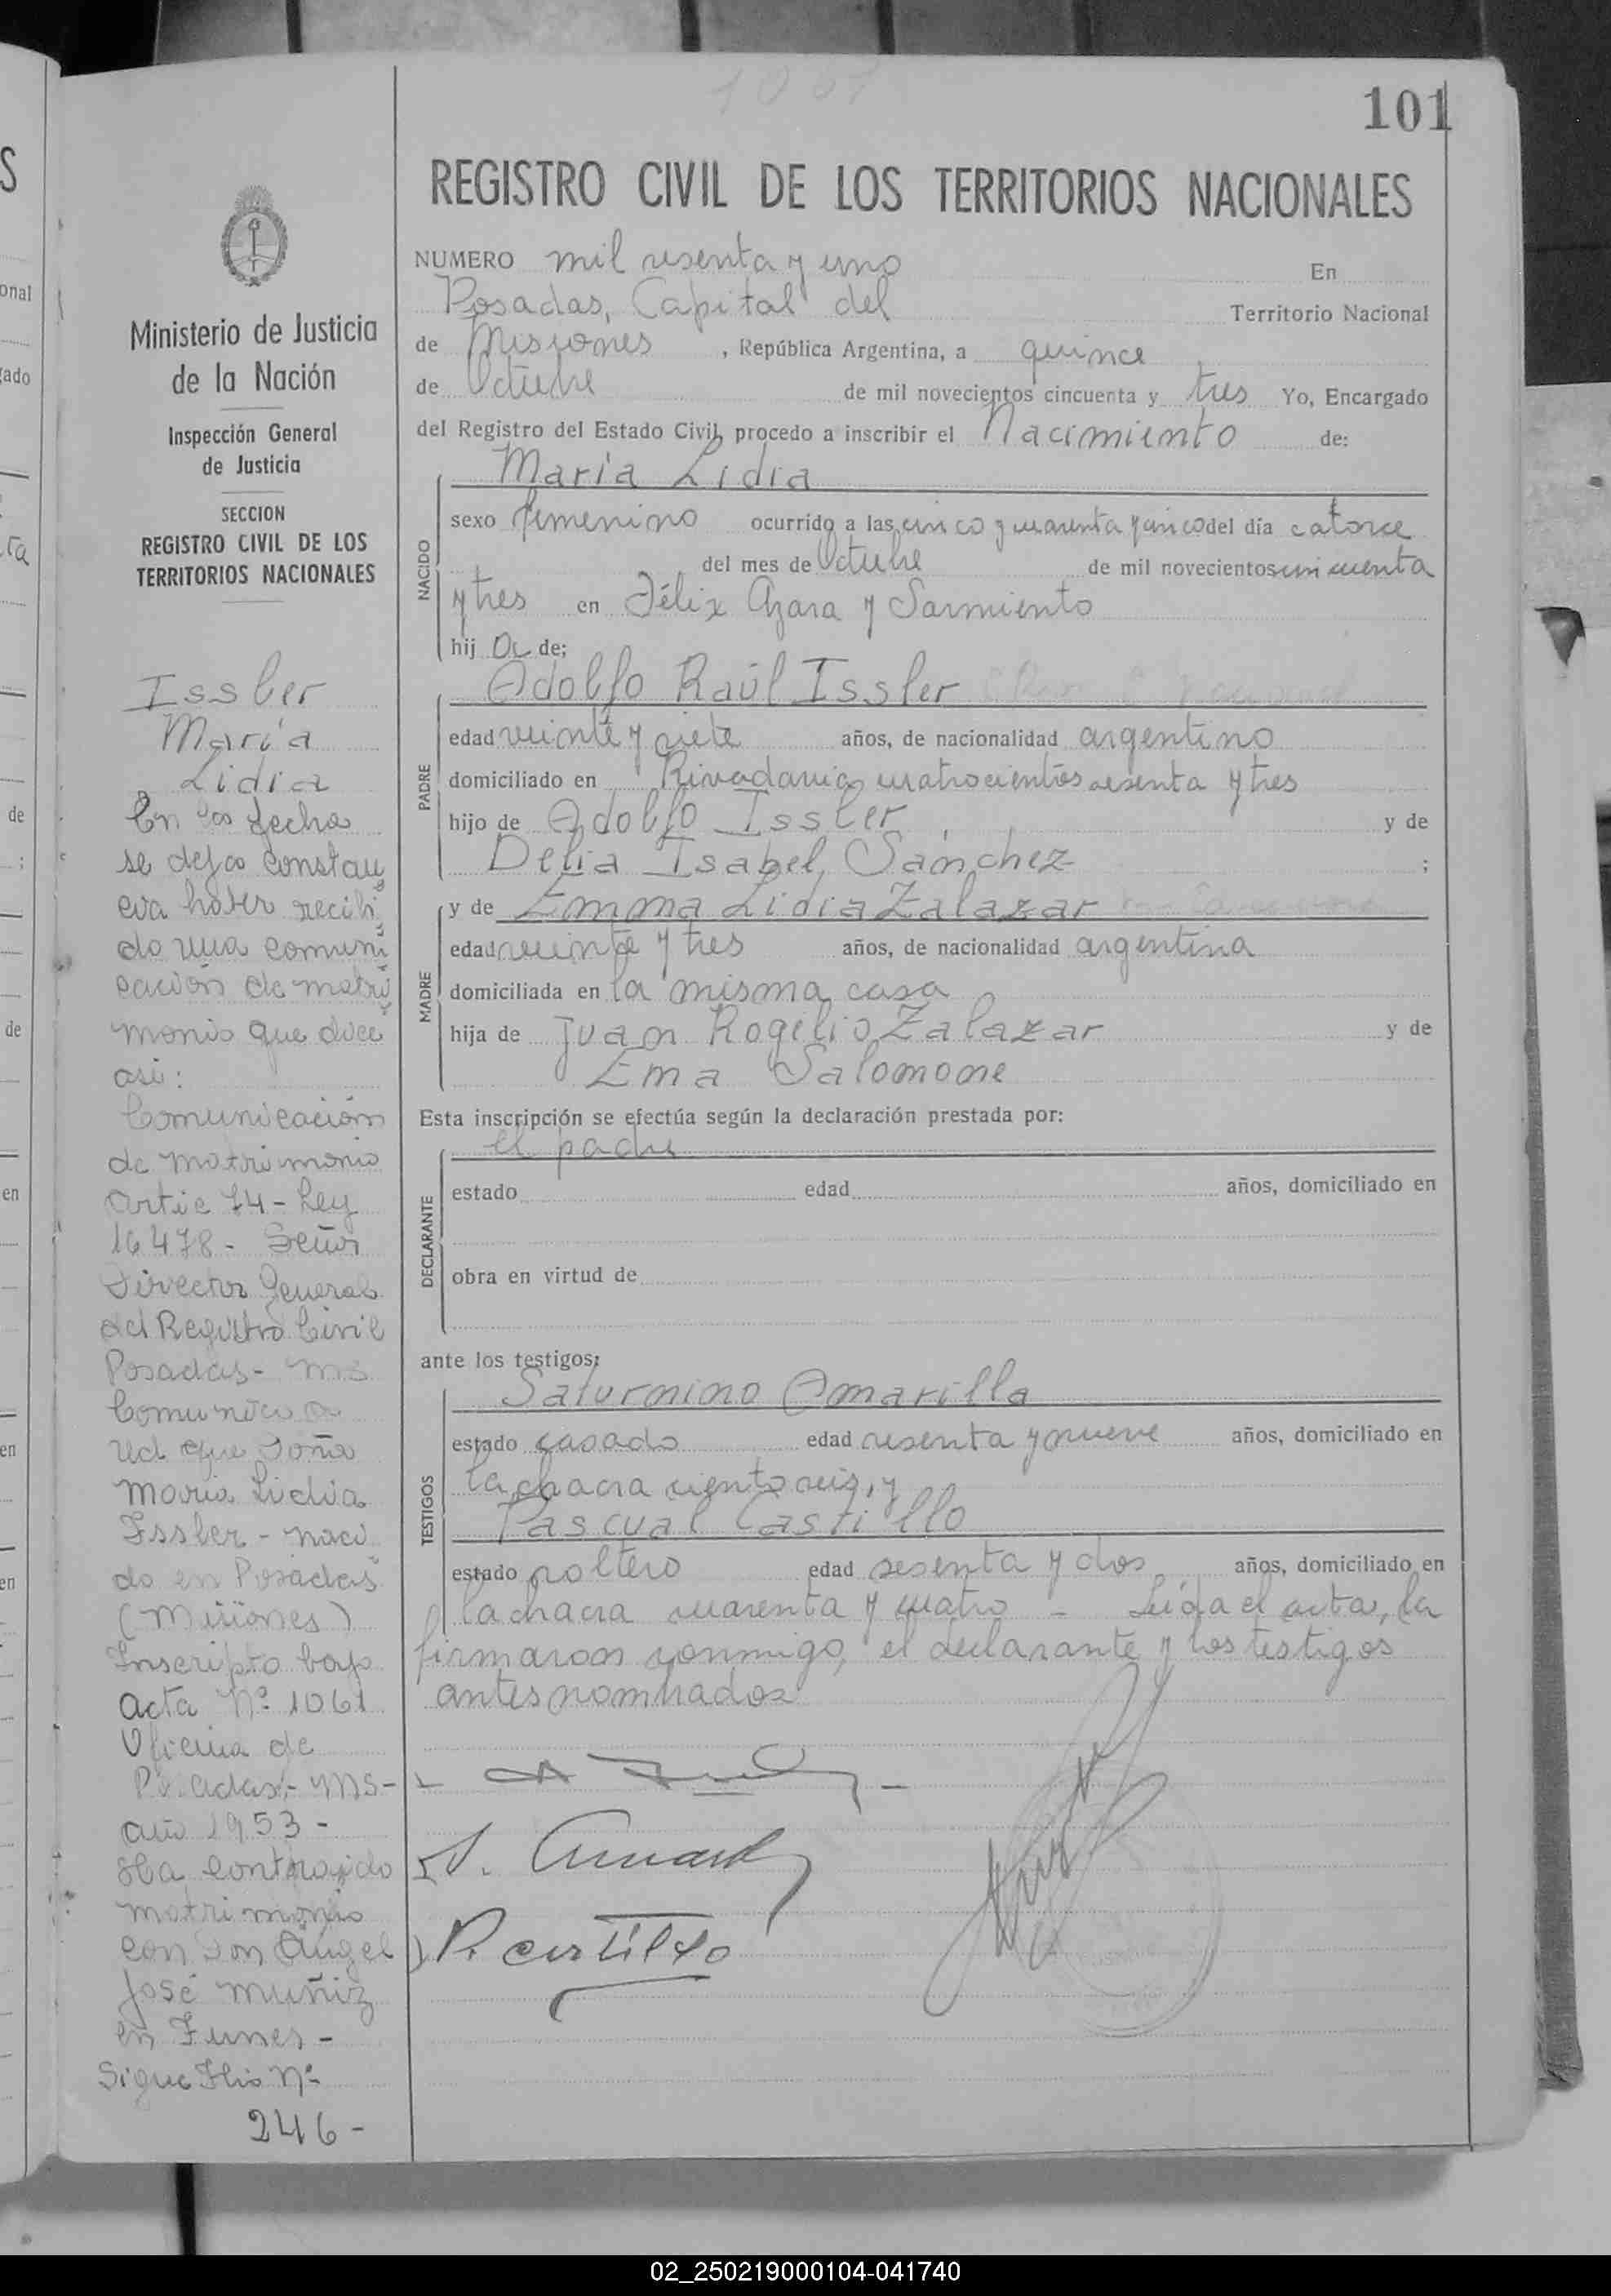 101
REGISTRO CIVIL DE LOS TERRITORIOS NACIONALES
Ministerio de Justicia
de la Nación
Inspección General
de Justicia
SECCION
REGISTRO CIVIL DE LOS
TERRITORIOS NACIONALES
Issler
María
Lidia
En la fecha
se deja constan
cia haber recibi
do una comuni
cación de matri
monio que dice
asi:
Comunicación
de matrimonio
Artic 74 - Ley
16478 - Señor
Director General
del Registro Civil
Posadas - Ms
Comunico a
Ud que Doña
Maria Lidia
Issler - naci
do en Posadas
(Misiones)
Inscripto bajo
acta Nº 1061
Oficina de
Posadas - Ms -
año 1953 -
Ha contraido
matrimonio
con Don Ángel
José Muñiz
en Funes -
Sigue Flio Nº
246 -
NUMERO mil sesenta y uno En
Posadas, Capital del Territorio Nacional
de Misiones , República Argentina, a quince
de Octubre de mil novecientos cincuenta y tres Yo, Encargado
del Registro del Estado Civil, procedo a inscribir el Nacimiento de:
María Lidia
NACIDO
sexo femenino ocurrido a las cinco y cuarenta y cinco del día catorce
del mes de Octubre de mil novecientos cincuenta
y tres en Félix Azara y Sarmiento
hij a de;
Adolfo Raúl Issler
PADRE
edad veinte y siete años, de nacionalidad argentino
domiciliado en Rivadavia cuatrocientos sesenta y tres
hijo de Adolfo Issler y de
Delia Isabel Sánchez ;
y de Emma Lidia Zalazar
MADRE
edad veinte y tres años, de nacionalidad argentina
domiciliada en la misma casa
hija de Juan Rogelio Zalazar y de
Ema Salomone
Esta inscripción se efectúa según la declaración prestada por:
el padre
DECLARANTE
estado edad años, domiciliado en
obra en virtud de
ante los testigos:
Saturnino Amarilla
TESTIGOS
estado casado edad sesenta y nueve años, domiciliado en
la chacra ciento seis, y
Pascual Castillo
estado soltero edad sesenta y dos años, domiciliado en
la chacra cuarenta y cuatro - Leída el acta, la
firmaron conmigo, el declarante y los testigos
antes nombrados
P. Castillo
02_250219000104-041740